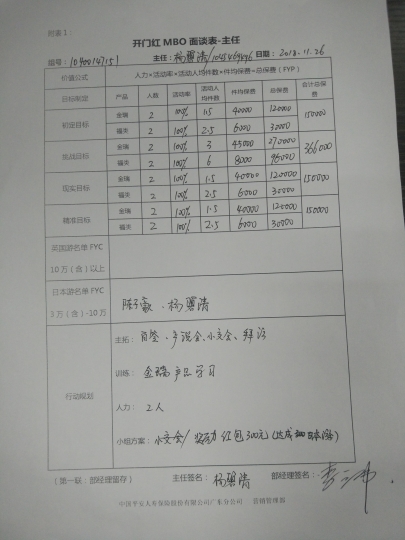 附案1：
开门红 MBO 面谈表-主任
编号：1090147151 主任：杨翠清/ 日期：2018.11.26
价值公式 人力*活动率*活动人均件数*件均保费=总保费（FYP）
目标制定 产品 人数 活动率 活动人均件数 件均保费 总保费 合计总保费
初定目标 金瑞 2 100% 1.5 40000 120000 150000
福天 2 100% 2.5 6000 30000
挑战目标 金瑞 2 100% 3 45000 270000 366000
福天 2 100% 6 8000 96000
现实目标 金瑞 2 100% 1.5 40000 120000 150000
福天 2 100% 2.5 6000 30000
精准目标 金瑞 2 100% 1.5 40000 120000 150000
福天 2 100% 2.5 6000 30000
英国游名单 FYC
10 万（含）以上
日本游名单 FYC
3 万（含）-10 万
陈 敏、杨翠清
行动规划
主拓：首签、产说会、小交会、拜访
训练：金瑞产品学习
人力：2人
小组方案：小交会/奖励红包300元（达成 ）
（第一联：部经理留存） 主任签名：杨翠清 部经理签名：
中国平安人寿保险股份有限公司广东分公司 营销管理部